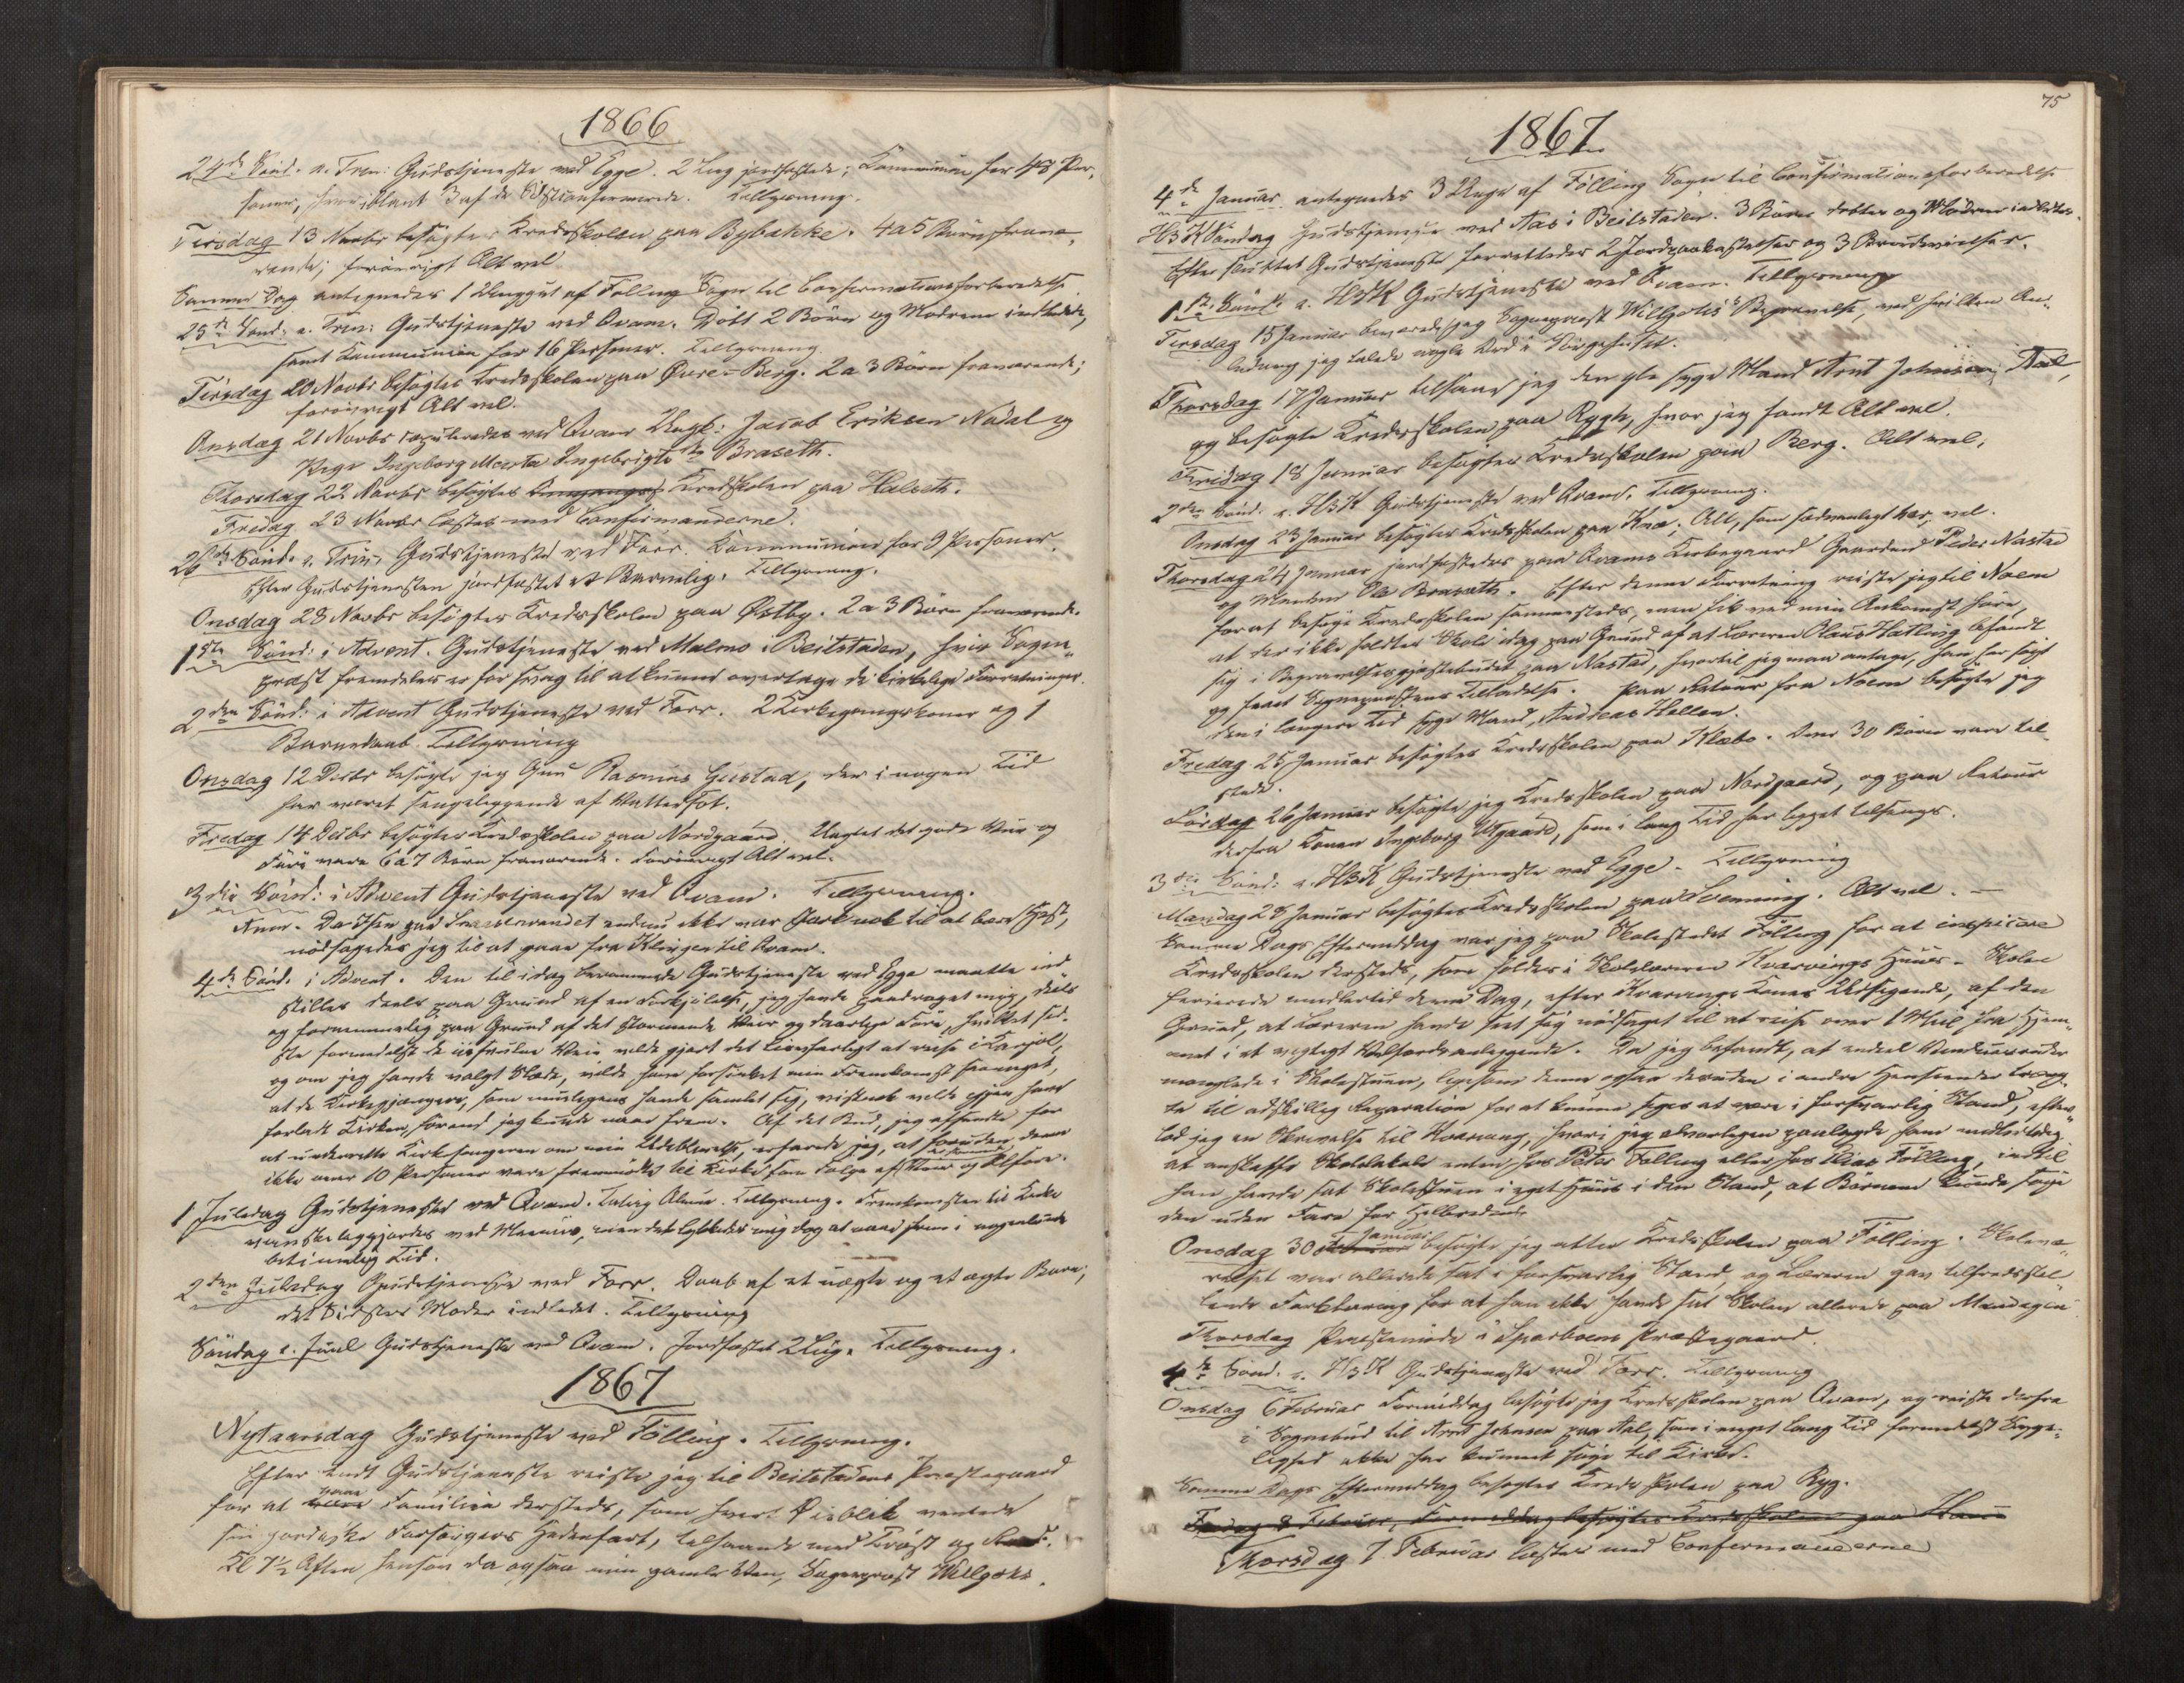 1866
24de Sönd. e. Trin: Gudstjeneste ved Egge. 2 Liig jordfæstede; Kommunion for 48 Per-
soner, hvoriblandt 3 af de Tillysning.
Tirsdag 13 Novbr besøgtes Kredsskolen paa Bybahke. 4 a 5 Börn fravæ-
rende; forövrigt Alt vel.
Samme Dag antegnedes 1 af Følling Sogn til Confirmationsforberedelse.
25de Sönd. e. Trin: Gudstjeneste ved Qvam. Döbt 2 Börn og Mödrene indledede,
samt Kommunion for 16 Personer. Tillysning.
Tirsdag 20 Novbr besøgtes Kredsskolen paa Övre-Berg. 2 a 3 Börn fraværende;
forövrigt Alt vel.
Onsdag 21 Novbr copuleredes ved Qvam Ungk: Jacob Eriksen Nödal og
Pige Ingeborg Marta Ingebrigtsdtr Braseth.
Thorsdag 22 Novbr besøgtes Kredsskolen paa Halseth.
Fredag 23 Novbr læstes med Confirmanderne.
26de Sönd. e. Trin, Gudstjeneste ved For. Kommunion for 9 Personer.
Efter Gudstjenesten jordfæstet et Barnelig. Tillysning.
Onsdag 28 Novbr besøgtes Kredsskolen paa Østby. 2 a 3 Börn fraværende.
1ste Sönd: i Advent. Gudstjeneste ved Malmo i Beitstaden, hvis Sogne-
præst fremdeles er for svag til at kunne overtage de kirkelige Forretninger.
2den Sönd: i Advent Gudstjeneste ved For. 2 Kirkegangskoner og 1
Barnedaab. Tillysning
Onsdag 12 Decbr besøgte jeg Rasmus Gustad, der i nogen Tid
har været sengeliggende af Vattersot.
Fredag 14 Decbr besøgtes Kredsskolen paa Nordgaard. Uagtet det gode Veir og
Före vare 6 à 7 Börn fraværende. Forövrigt Alt vel.
3die Sönd: i Advent Gudstjeneste ved Qvam. Tillysning.
Anm. Da Isen paa Snaasenvandet endnu ikke var stærk nok til at bære Hest,
nödsagedes jeg til at gaae fra Klingen til Qvam.
4de Sönd. i Advent. Den til idag berammede Gudstjeneste ved Egge maatte ind-
stilles deels paa Grund af en Forkjölelse, jeg havde paadraget mig, deels
og fornemmelig paa Grund af det stormende Veir og daarlige Före, hvilket sid-
ste formedelst de Veie vilde gjort det livsfarligt at reise i Karjol,
og om jeg havde valgt Slæde, vilde have forsinket min Fremkomst saameget,
at de Kirkegjængere, som muligens havde samlet sig, vistnok vilde igjen have
forladt Kirken, forend jeg kunde naae frem. Af det Bud, jeg afsendte for
at underrette Kirkesangeren om min Udeblivelse, erfarede jeg, at foruden denne
ikke over 10 Personer vare fremmödte til Kirke som Følge af Veir og Uföre.
1 Juledag Gudstjeneste ved Qvam. Talrig Almue. Tillysning. Fremkomsten til Kirke
vanskeliggjordes ved, men det lykkedes mig dog at naae frem i nogenlunde
betimelig Tid.
2den Juledag Gudstjeneste ved For. Daab af et uægte og et ægte Barn;
det Sidstes Moder indledet. Tillysning
Söndag e. Juul Gudstjeneste ved Qvam. Jordfæstet 2 Liig. Tillysning.
1867
Nytaarsdag Gudstjeneste ved Følling. Tillysning.
Efter endt Gudstjeneste reiste jeg til Beitstadens Præstegaard
for at Familien dersteds, som hvert Öieblik ventede
sin jordiske Forsørgers Hedenfart, tilhaande med Tröst og
Kl 7½ Aften hensov da ogsaa min gamle Ven, Sogneprest Willgohs.
75
1867
4de Januar antegnedes 3 Unge af Følling Sogn til Confirmationsforberedelse
H3K Söndag Gudstjeneste ved Aas i Beitstaden. 3 Börn döbte og Mödrene indledes.
Efter sluttet Gudstjeneste forrettedes 2 Jordpaakastelser og 3 Brudevielser.
1ste Sönd. e. H3K Gudstjeneste ved Qvam. Tillysning
Tirsdag 15 Januar jeg Sogneprest Willgohs's Begravelse, ved hvilken An-
ledning jeg talede nogle Ord i Sörgehuset.
Thorsdag 17 Januar tilsaae jeg den gle syge Mand Arnt Johnsen Aal,
og besøgte Kredsskolen paa Rygh, hvor jeg fandt Alt vel.
Fredag 18 Januar besøgtes Kredsskolen paa Berg. Alt vel.
2den Sönd. e. H3K Gudstjeneste ved Qvam. Tillysning.
Onsdag 23 Januar besøgtes Kredsskolen paa Kne; Alt, som sædvanligt her, vel.
Thorsdag 24 Januar jordfæstedes paa Qvams Kirkegaard Gaardmd Peder Nastad
og Manden Ole Braseth. Efter denne Forretning reiste jeg til Noem
for at besøge Kredsskolen sammesteds, men fik ved min Ankomst höre,
at der ikke holdtes Skole idag paa Grund af at Læreren Olaus Hatling befandt
sig i Begravelsesgjæstebudet paa Nastad, hvortil jeg maa antage, han har søgt
og faaet Sognepræstens Tilladelse. Paa Retour fra Noem besøgte jeg
den i længere Tid syge Mand, Andreas Hollen.
Fredag 25 Januar besøgtes Kredsskolen paa Klæbo. Over 30 Börn vare til-
stede.
Lördag 26 Januar besøgte jeg Kredsskolen paa Nordgaard, og paa Retour
derfra Konen Ingeborg Utgaard, som i lang Tid har ligget tilsengs.
3die Sönd: e. H3K Gudstjeneste ved Egge. Tillysning
Mandag 28 Januar besøgtes Kredsskolen paa Svenning. Alt vel. —
Samme Dags Eftermiddag var jeg paa Skolestedet Følling for at inspicere
Kredsskolen dersteds, som holdes i Skolelæreren Kvarvings Huus. Skolen
ferierede imidlertid denne Dag, efter Kvarvings Kones Udsigende, af den
Grund, at Læreren havde seet sig nödsaget til at reise over 1 Miil fra Hjem-
met i et vigtigt Velfærdsanliggende. Da jeg befandt, at endeel Vinduesruder
manglede i Skolestuen, ligesom denne ogsaa desuden i andre Henseender træng-
te til adskillig Reparation for at kunne siges at være i forsvarlig Stand, efter-
lod jeg en Skrivelse til Kvarving, hvori jeg alvorligen paalagde ham
at anskaffe Skolelokale enten hos Peter Følling eller hos Elias Følling, indtil
han havde sat Skolestuen i eget Huus i den Stand, at Börnene kunde søge
den uden Fare for Helbreden.
Onsdag 30 Januar besøgte jeg atter Kredsskolen paa Følling. Skolevæ-
relset var allerede sat i forsvarlig Stand, og Læreren gav tilfredsstil-
lende Forklaring for at han ikke havde sat Skolen allerede paa Mandagen
Thorsdag Præstemöde i Sparboens Præstegaard.
4de Sönd. e. H3K Gudstjeneste ved For. Tillysning
Onsdag 6 Februar Formiddag besøgte jeg Kredsskolen paa Qvam, og reiste derfra
i Sognebud til Arnt Johnsen paa Aal, som i meget lang Tid formedelst Syge-
lighed ikke har kunnet søge til Kirke.
Samme Dags Eftermiddag besøgtes Kredsskolen paa Ryg.
Fredag 8 Februar, Formiddag besøgtes Kredsskolen paa
Thorsdag 7 Februar læstes med Confirmanderne